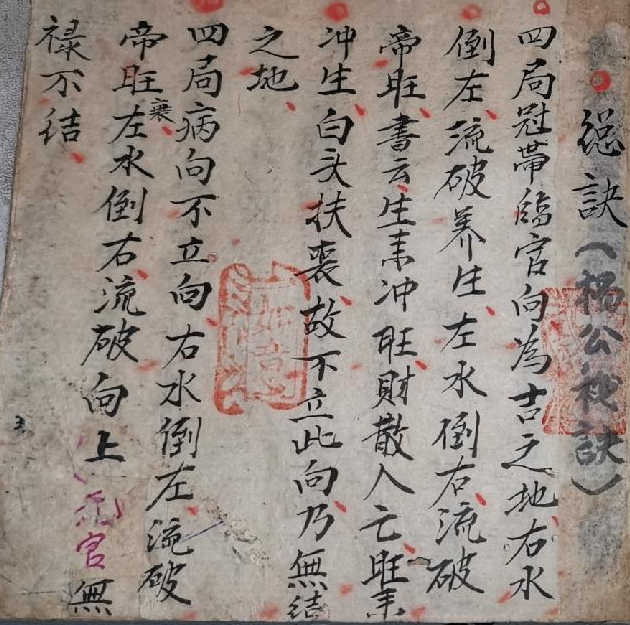 总訣（楊公救訣）
四局冠帶臨官向為吉之地右水
倒左流破养生左水倒右流破
帝旺書云生来冲旺財散人亡旺来
冲生白头扶丧故不立此向乃無结
之地
四局病向不立向右水倒左流破
帝旺衰左水倒右流破向上官無
禄不结